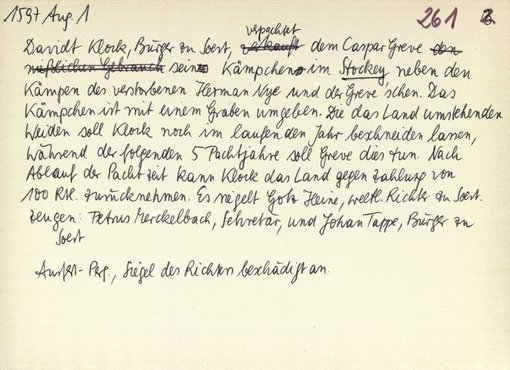 1597 Aug. 1 261 2
verpachtet
Davidt Klock, Bürger zu Soest, verkauft dem Caspar Greve den
nießlichen Gebrauch seine Kämpchen im Stockey, neben den
Kämpen des verstorbenen Herman Nye und der Greve'schen. Das
Kämpchen ist mit einem Graben umgeben. Die das Land umstehenden
Weiden soll Klock noch im laufenden Jahr beschneiden lassen,
während der folgenden 5 Pachtjahre soll Greve dies tun. Nach
Ablauf der Pachtzeit kann Klock das Land gegen Zahlung von
100 Rtl. zurücknehmen. Es siegelt Gotz Heine, weltl. Richter zu Soest.
Zeugen: Petrus Merckelbach, Sekretär, und Johan Tappe, Bürger zu
Soest
Ausfert-Perg., Siegel des Richters beschädigt an.